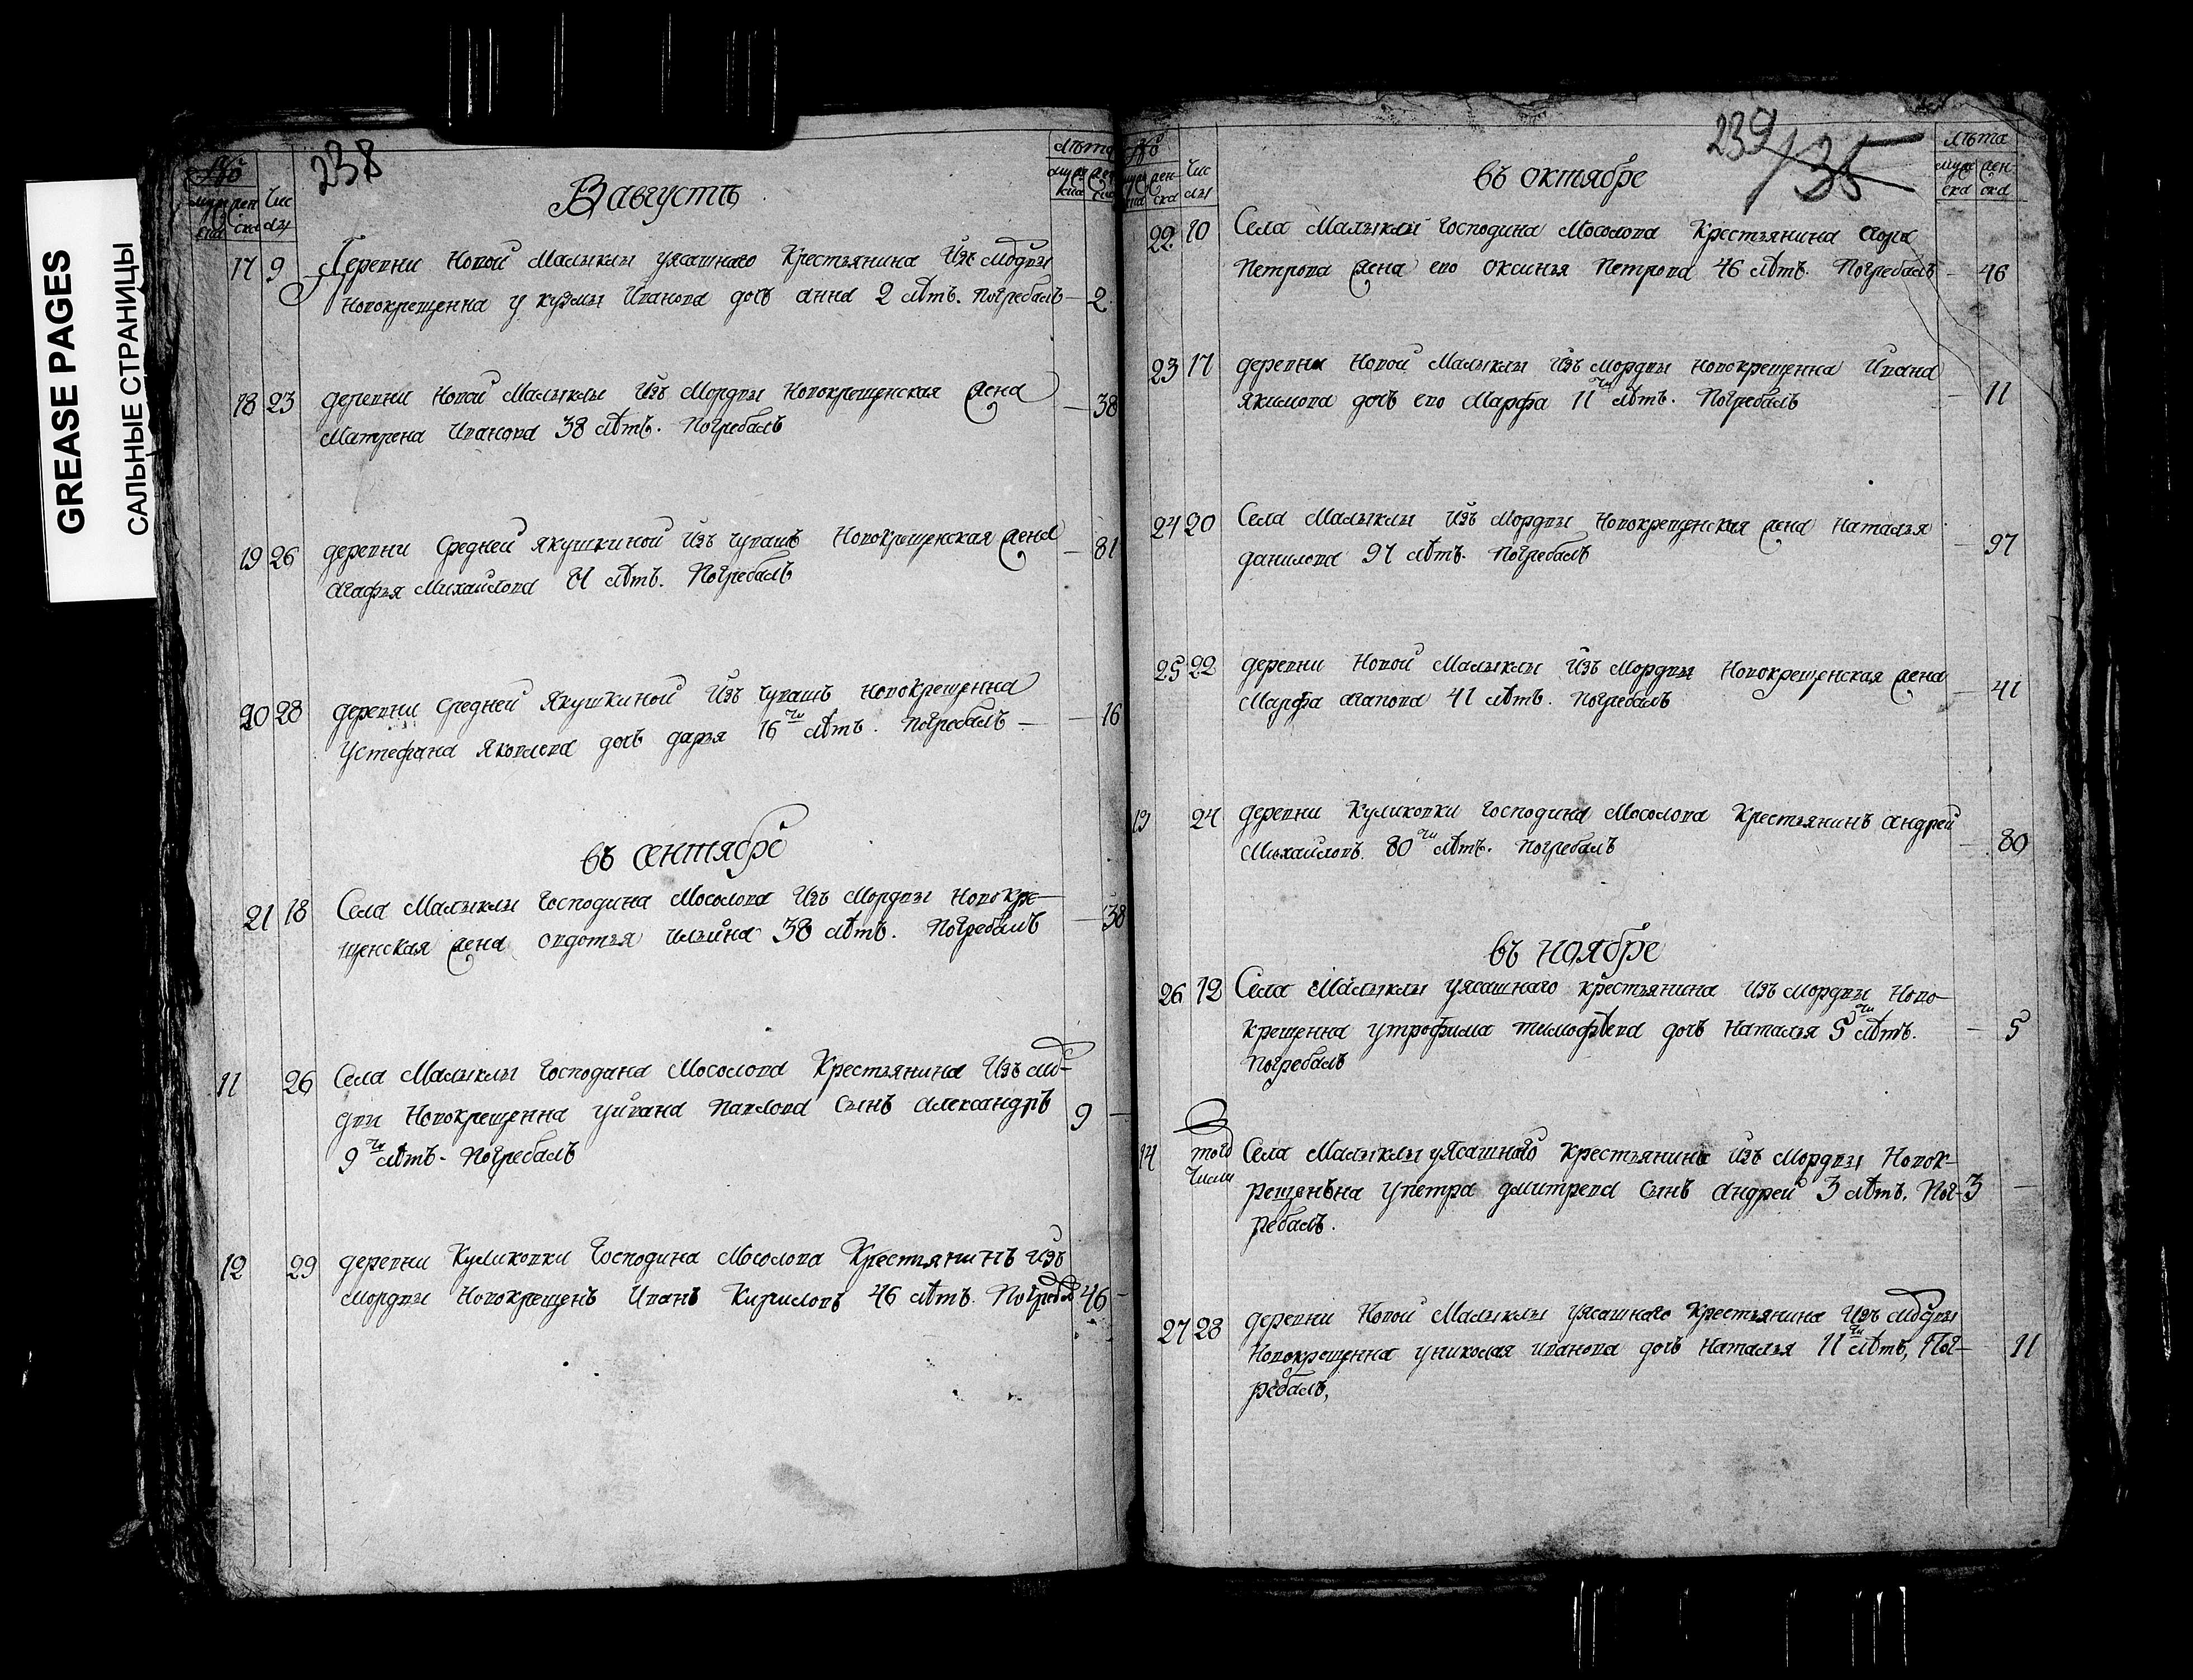 GREASE PAGES
САЛЬНЫЕ СТРАНИЦЫ
238
№
муж ска
жен ска
Чис лы
лѣта
муж ска
жен ска
В августѣ
17 9 Деревни Новой Малыклы уясашнаго Крестьянина Изъ мордвы
новокрещенна у кузмы Иванова дочь анна 2 лѣтъ. погребалъ — 2
18 23 деревни Новой Малыклы Изъ Мордвы Новокрещенская жена — 38
Матрена Иванова 38 лѣтъ. Погребалъ
19 26 деревни Средней Якушкиной Изъ чувашъ Новокрещенская жена — 81
агафья Михайлова 81 лѣтъ. Погребалъ
20 28 деревни Средней Якушкиной Изъ чувашъ новокрещенна — 16
Устефана Яковлева дочь дарья 16ти лѣтъ. Погребалъ —
въ сентябре
21 18 Села Малыклы Господина Мосолова Изъ Мордвы Новокре-
щенская жена овдотья ильина 38 лѣтъ. Погребалъ — 38
11 26 Села Малыклы Господана Мосолова Крестьянина Изъ мор-
дви Новокрещенна уивана Павлова Сынъ Александръ 9 —
9ти лѣтъ. Погребалъ
12 29 деревни Куликовки Господина Мосолова Крестьянинъ изъ
мордвы Новокрещенъ Иванъ Кириловъ 46 лѣтъ. Погребалъ 46 —
239
135
№
муж ска
жен ска
Чис лы
лѣта
муж ска
жен ска
въ октябре
22 10 Села Малыклы Господина Мосолова Крестьянина
Петрова жена ево оксинья Петрова 46 лѣтъ. Погребалъ — 46
23 17 деревни Новой Малыклы Изъ мордвы новокрещенна Ивана
якимова дочь ево Марфа 11ти лѣтъ. Погребалъ — 11
24 20 Села Малыклы Изъ мордвы Новокрещенская жена Наталья
данилова 97 лѣтъ. Погребалъ — 97
25 22 деревни Новой Малыклы Изъ Мордвы Новокрещенская жена
Марфа агапова 41 лѣтъ. погребалъ — 41
13 24 деревни Куликовки Господина Мосолова Крестьянинъ андрей
Михайловъ 80ти лѣтъ. погребалъ — 80
въ ноябре
26 12 Села Малыклы уясашнаго крестьянина Изъ мордвы Ново-
крещенна утрофима тимофѣева дочь Наталья 5ти лѣтъ. — 5
Погребалъ
14 того числа Села Малыклы уясашнаго крестьянина Изъ Мордвы Новок-
рещенъна упетра дмитрева Сынъ андрей 3 лѣтъ. Пог- 3 —
ребалъ.
27 28 деревни Новой Малыклы уясашнаго Крестьянина Изъ мордвы
Новокрещенна униколая иванова дочь Наталья 11ти лѣтъ, Пог- 11
ребалъ,